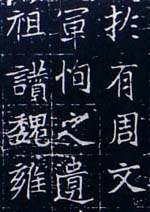 扵有周文
軍恂之遺
祖讚魏雍